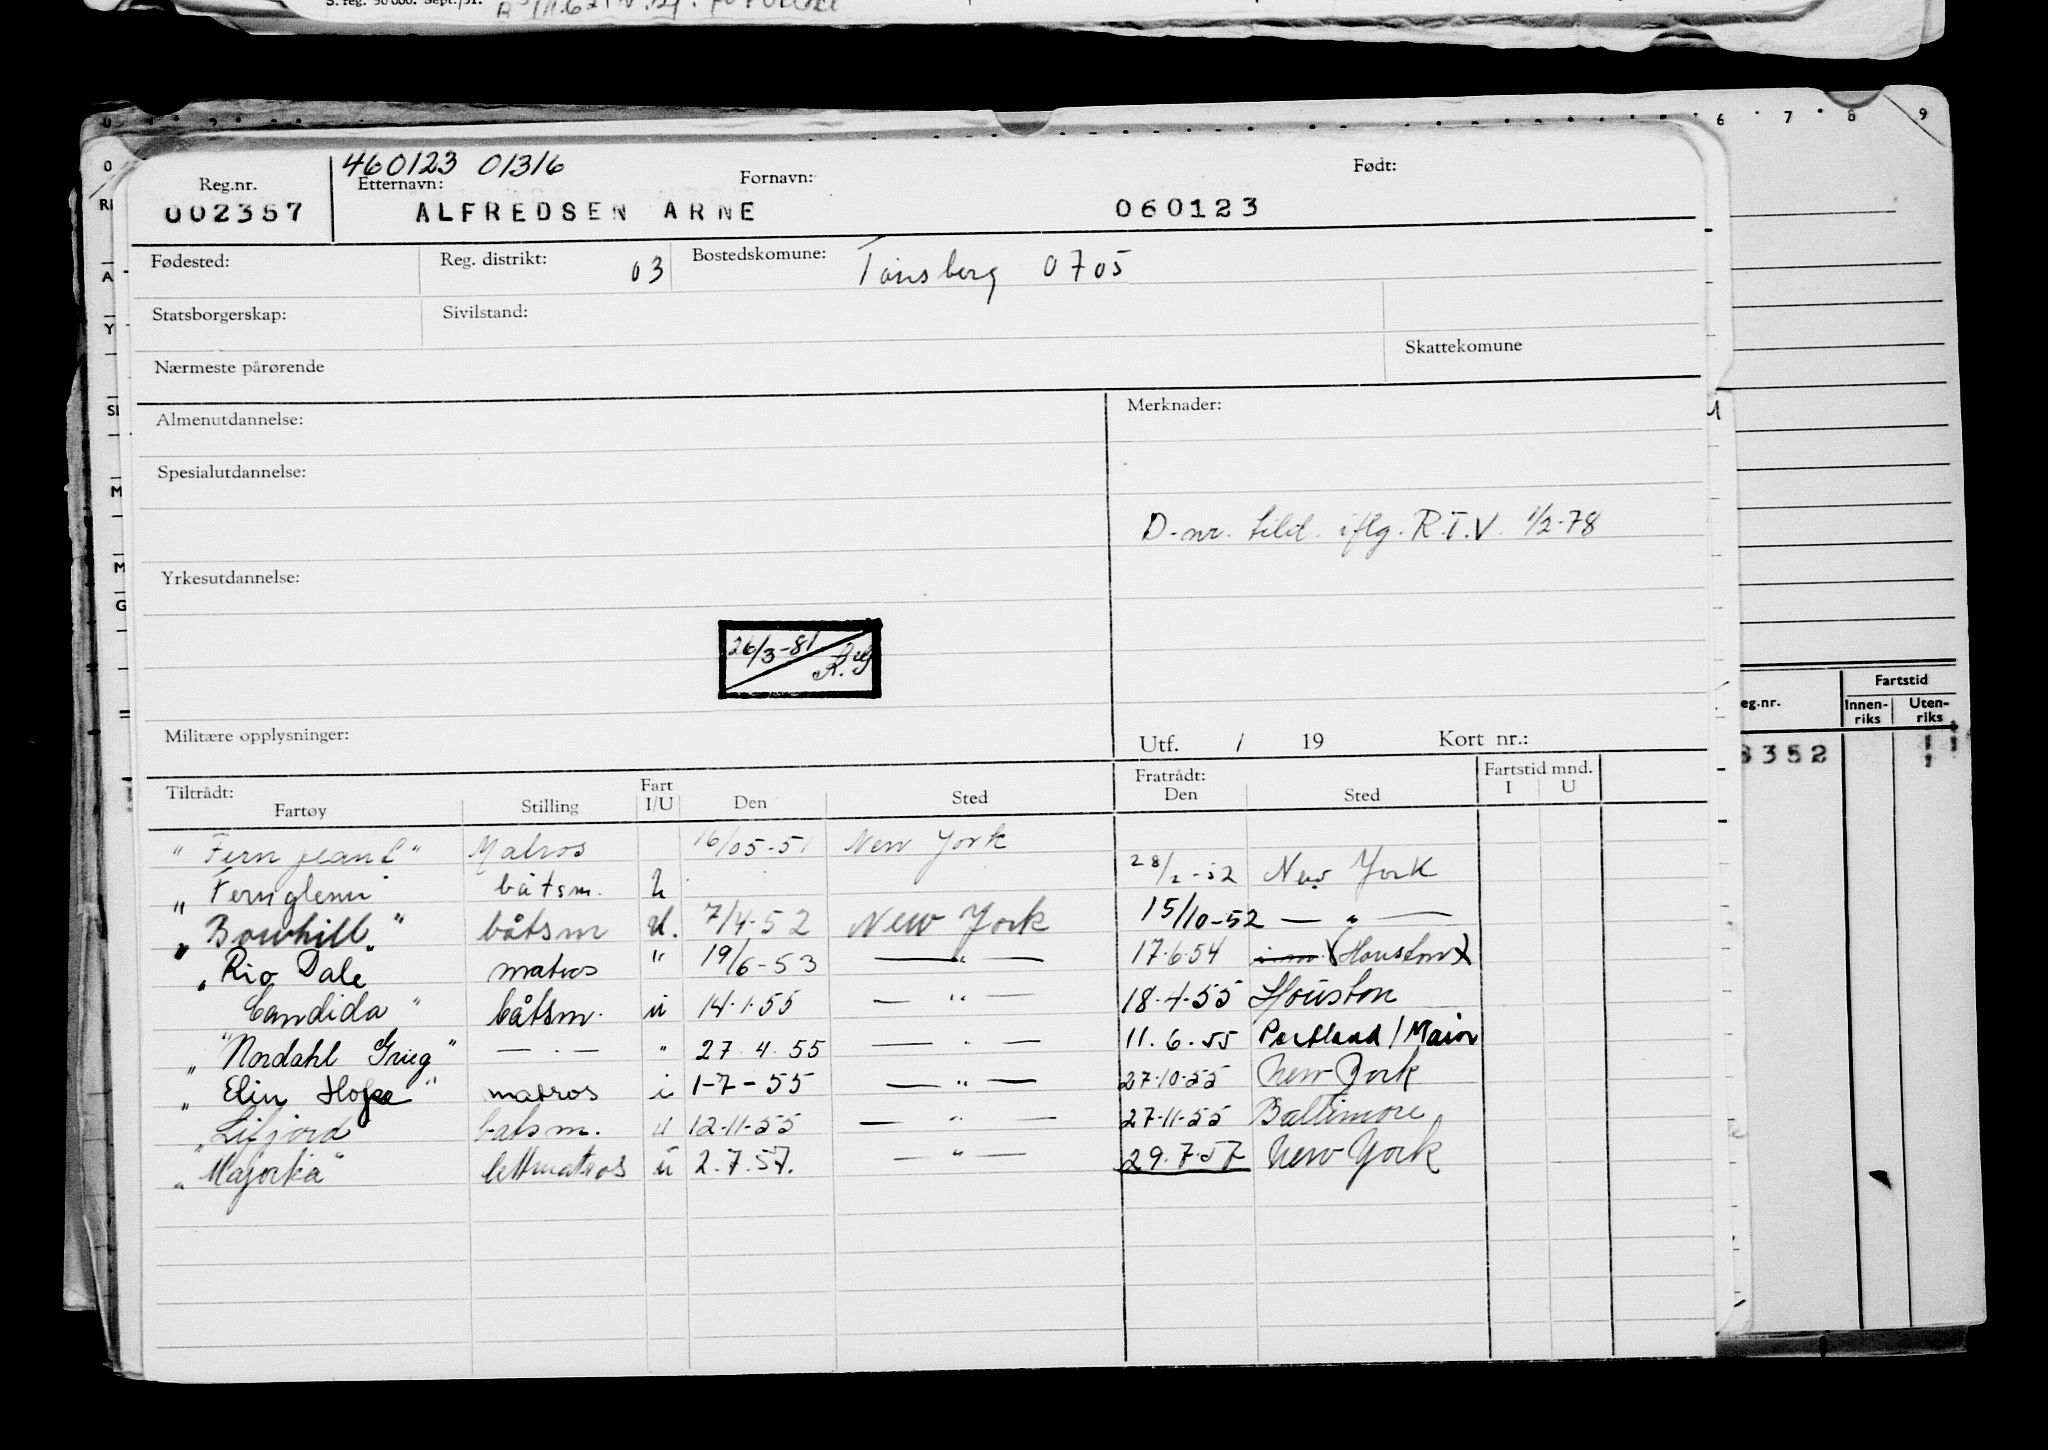 S. reg. 50 000. Sept./51.
0 6 7 8 9
460123 01316
Reg.nr. Etternavn: Fornavn: Født:
002357 ALFREDSEN ARNE 060123
Fødested: Reg. distrikt: 03 Bostedskomune: Tønsberg 0705
Statsborgerskap: Sivilstand:
Nærmeste pårørende Skattekomune
Almenutdannelse: Merknader:
Spesialutdannelse:
D-nr. tild. iflg. R.T.V. 1/2-78
Yrkesutdannelse:
26/3-81
Militære opplysninger: Utf. / 19 Kort nr.:
Fartstid
eg.nr. Innen-riks Uten-riks
3352
Tiltrådt: Fart Fratrådt: Fartstid mnd.
Fartøy Stilling I/U Den Sted Den Sted I U
" Fern " Matros 16/05-51 New York
" Fernglenn båtsm. U 28/2-52 New York
" Bowhill " båtsm U. 7/4-52 New York 15/10-52 — " —
" Rio Dale " matros " 19/6-53 — " — 17.6.54 (Houston)
Candida " båtsm. u 14.1.55 — " — 18.4.55 Houston
" Nordahl Grieg " — . — " 27.4.55 — " — 11.6.55 Portland / Maine
" Elin Hope " matros u 1-7-55 — " — 27.10.55 New York
" Lifjord båtsm. u 12-11-55 — " — 27-11-55 Baltimore
" Majorka " lettmatros u 2.7.57. — " — 29.7.57 New York